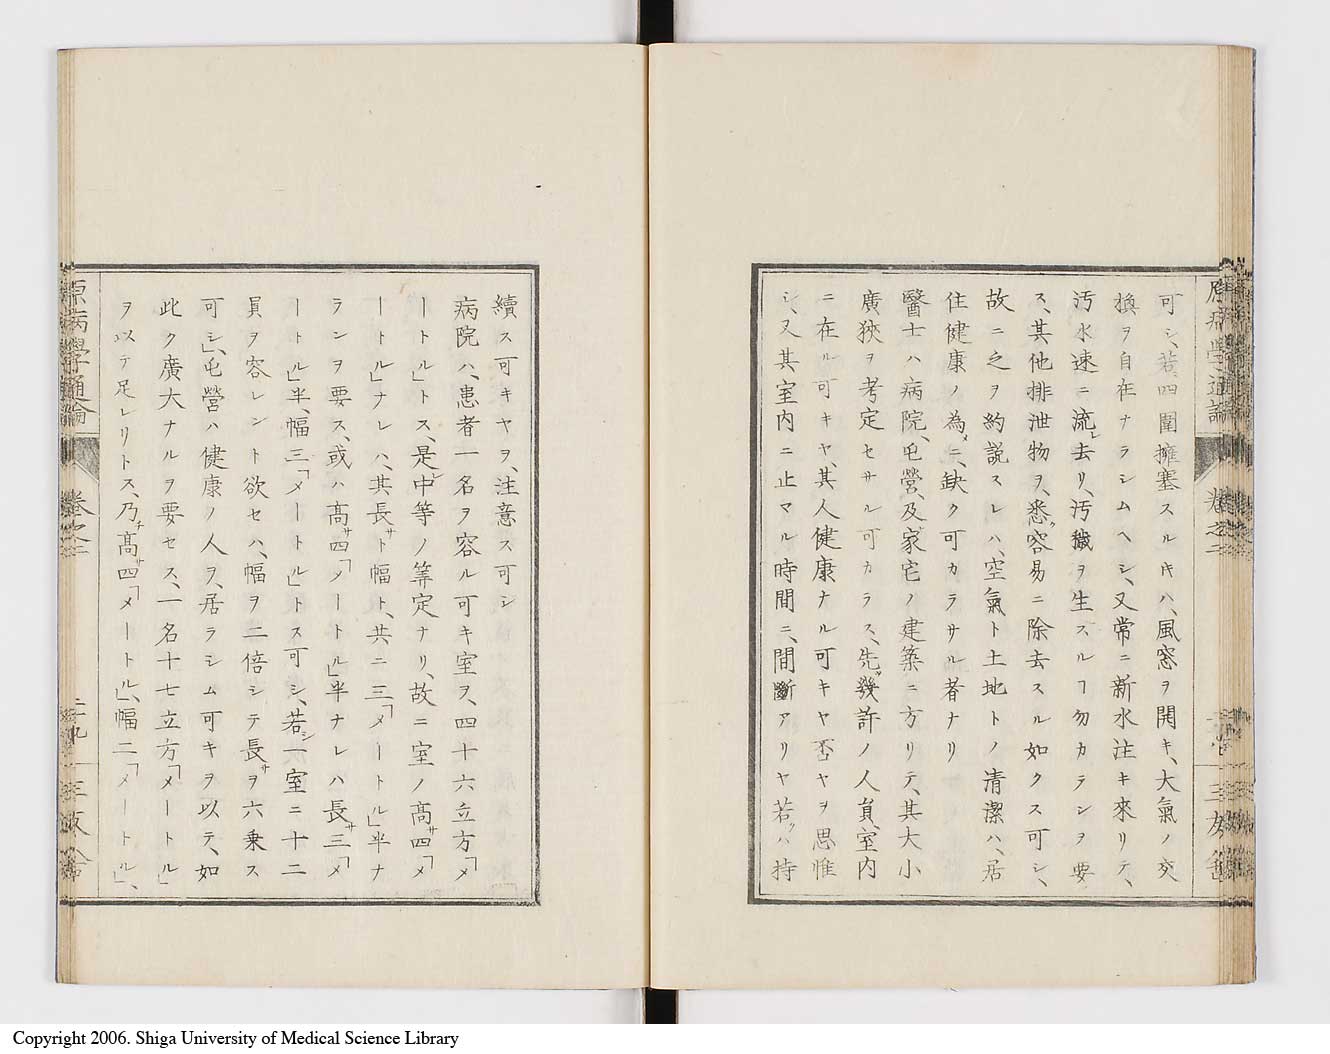 可シ、若シ四圍擁塞スルキハ、風窓ヲ開キ、大氣ノ交
換ヲ自在ナラシムヘシ、又常ニ新水注キ來リテ、
汚水速ニ流レ去リ、汚穢ヲ生スルヿ勿カランヲ要
ス、其他排泄物ヲ、悉ク容易ニ除去スル如クス可シ、
故ニ之ヲ約説スレハ、空氣ト土地トノ清潔ハ、居
住健康ノ為メニ、缺ク可カラサル者ナリ
醫士ハ病院、屯營、及家宅ノ建築ニ方リテ、其大小
廣狹ヲ考定セサル可カラス、先ツ幾許ノ人員、室内
ニ在ル可キヤ、其人健康ナル可キヤ否ヤヲ思惟
シ、又其室内ニ止マル時間ニ、間斷アリヤ若クハ持
續ス可キヤヲ、注意ス可シ
病院ハ、患者一名ヲ容ル可キ室ヲ、四十六立方「メ
ートル」トス、是レ中等ノ筭定ナリ、故ニ室ノ髙サ四「メ
ートル」ナレハ、其長サト幅ト、共ニ三「メートル」半ナ
ランヲ要ス、或ハ髙サ四「メートル」半ナレハ長サ三「メ
ートル」半、幅三「メートル」トス可シ、若シ一室ニ十二
員ヲ容レント欲セハ、幅ヲ二倍シテ長サヲ六乗ス
可シ、屯營ハ健康ノ人ヲ、居ラシム可キヲ以テ、如
此ク廣大ナルヲ要セス、一名十七立方「メートル」
ヲ以テ足レリトス、乃チ髙サ四「メートル」、幅二「メートル」、
原病學通論
卷之二
二十九
三友舎
Copyright 2006. Shiga University of Medical Science Library